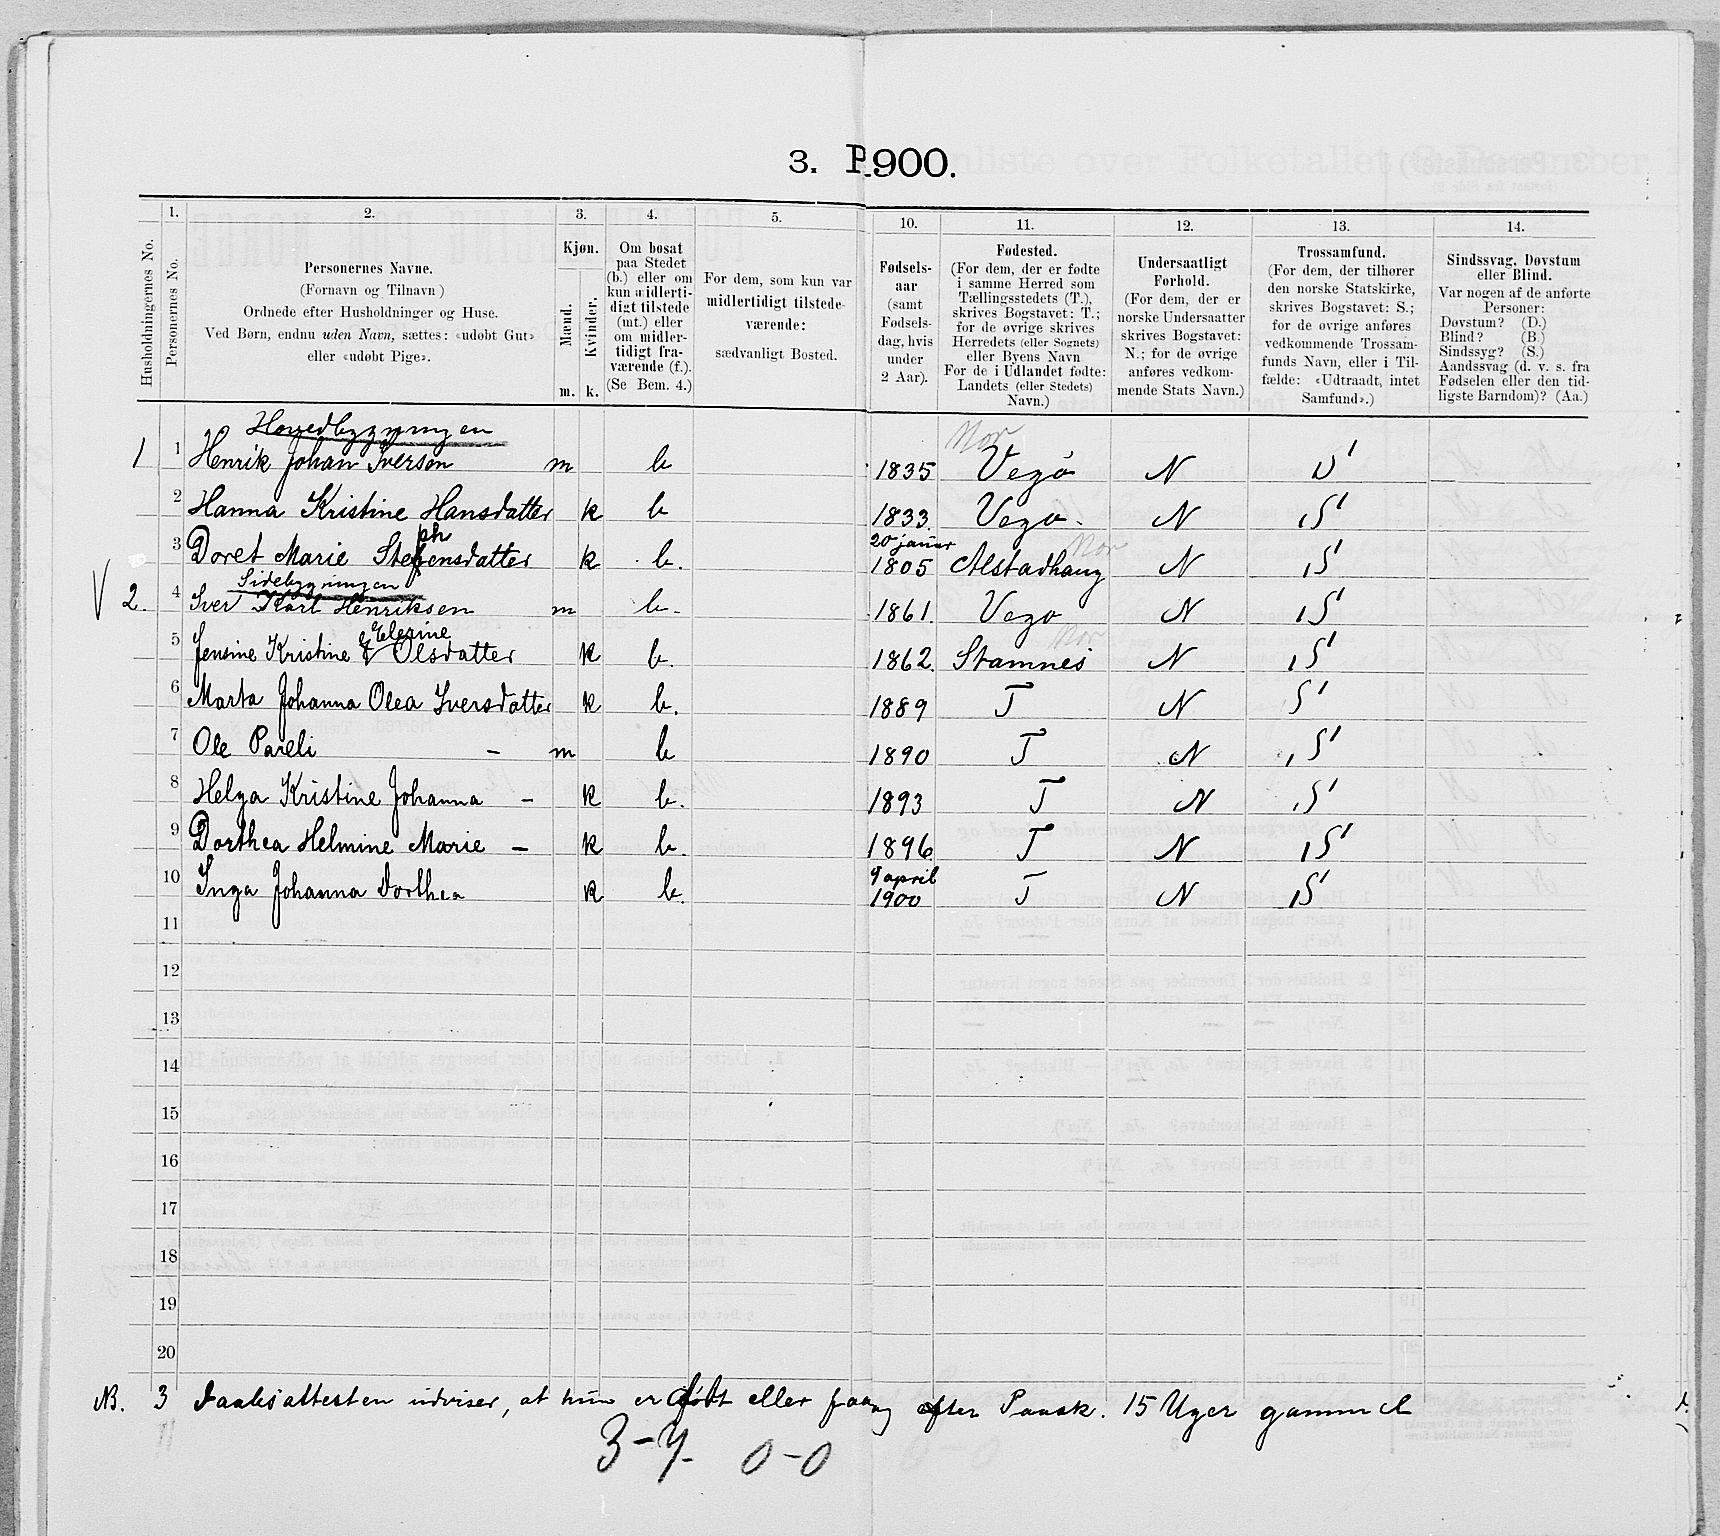 3. P 1900.
1. 2. 3. 4. 5. 10. 11. 12. 13. 14.
Husholdningernes No.
Personernes No.
Personernes Navne.
(Fornavn og Tilnavn)
Ordnede efter Husholdninger og Huse.
Ved Børn, endnu uden Navn, sættes: «udøbt Gut»
eller «udøbt Pige».
Kjøn.
Mænd.
Kvinder.
m. k.
Om bosat
paa Stedet
(b.) eller om
kun midlerti-
digt tilstede
(mt.) eller
om midler-
tidigt fra-
værende (f.).
(Se Bem. 4.)
For dem, som kun var
midlertidigt tilstede-
værende:
sædvanligt Bosted.
Fødsels-
aar
(samt
Fødsels-
dag, hvis
under
2 Aar).
Fødested.
(For dem, der er fødte
i samme Herred som
Tællingsstedets (T.),
skrives Bogstavet: T.;
for de øvrige skrives
Herredets (eller Sognets)
eller Byens Navn
For de i Udlandet fødte:
Landets (eller Stedets)
Navn.)
Undersaatligt
Forhold.
(For dem, der er
norske Undersaatter
skrives Bogstavet:
N.; for de øvrige
anføres vedkom-
mende Stats Navn.)
Trossamfund.
(For dem, der tilhører
den norske Statskirke,
skrives Bogstavet: S.;
for de øvrige anføres
vedkommende Trossam-
funds Navn, eller i Til-
fælde: «Udtraadt, intet
Samfund».)
Sindssvag, Døvstum
eller Blind.
Var nogen af de anførte
Personer:
Døvstum? (D.)
Blind? (B.)
Sindssyg? (S.)
Aandssvag (d. v. s. fra
Fødselen eller den tid-
ligste Barndom)? (Aa.)
Hovedbygningen Nor
1 1 Henrik Johan Iversen m b 1835 Vegø N S
2 Hanna Kristine Hansdatter k b 1833. Vegø. N S
ph 20 januar Nor
3 Doret Marie Stefensdatter k b. 1805 Alstadhaug N S
Sidebygningen
V 2. 4 Iver Karl Henriksen m b. 1861. Vegø N S
Elerine Nor
5 Jensine Kristine E Olsdatter k b. 1862. Stamnes N S
6 Marta Johanna Olea Iversdatter k b. 1889 T N S
7 Ole Pareli – m b 1890 T N S
8 Helga Kristine Johanna – k b. 1893 T N S
9 Dorthea Helmine Marie – k b. 1896 T N S
9 april
10 Inga Johanna Dorthea k b. 1900 T N S
11
12
13
14
15
16
17
18
19
20
NB. 3 Daabsattesten udviser, at hun er født eller faaag efter Paask. 15 Uger gammel
3–7. 0–0